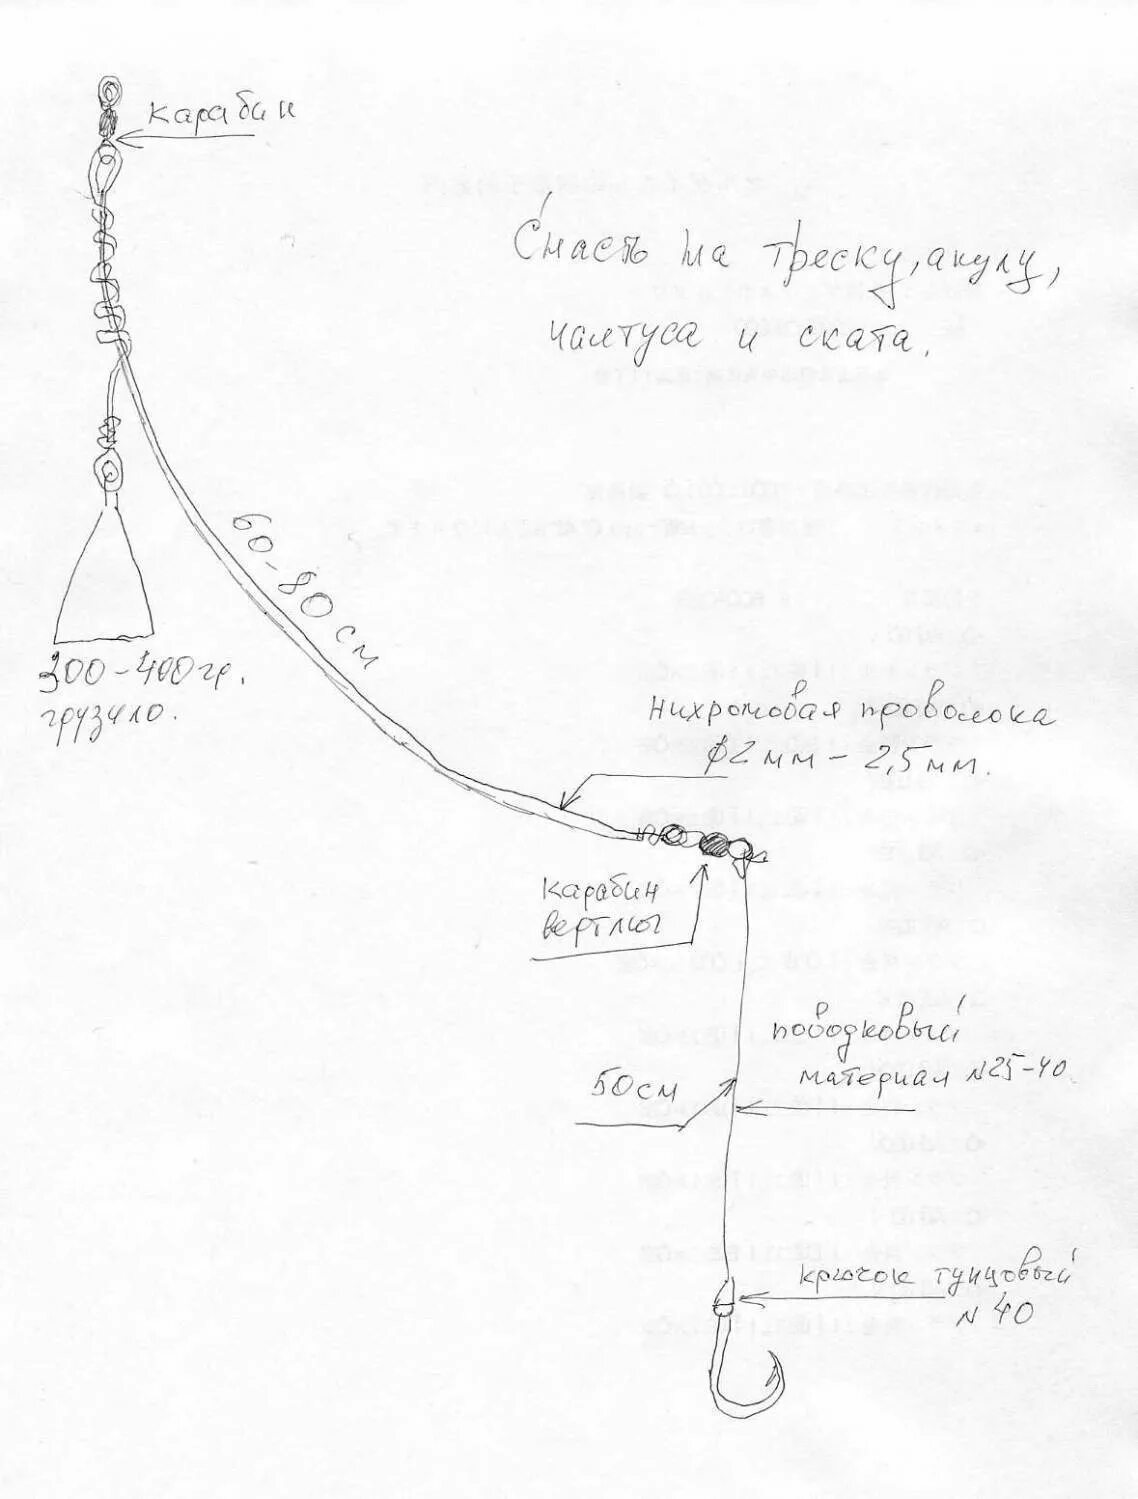 карабин
Снасть на треску, акулу,
палтуса и ската.
60-80 см
300-400 гр.
грузило.
Нихромовая проволока
ϕ2 мм - 2,5 мм.
карабин
вертлюг
поводковый
материал N25-40
50 см
крючок тунцовый
N 40